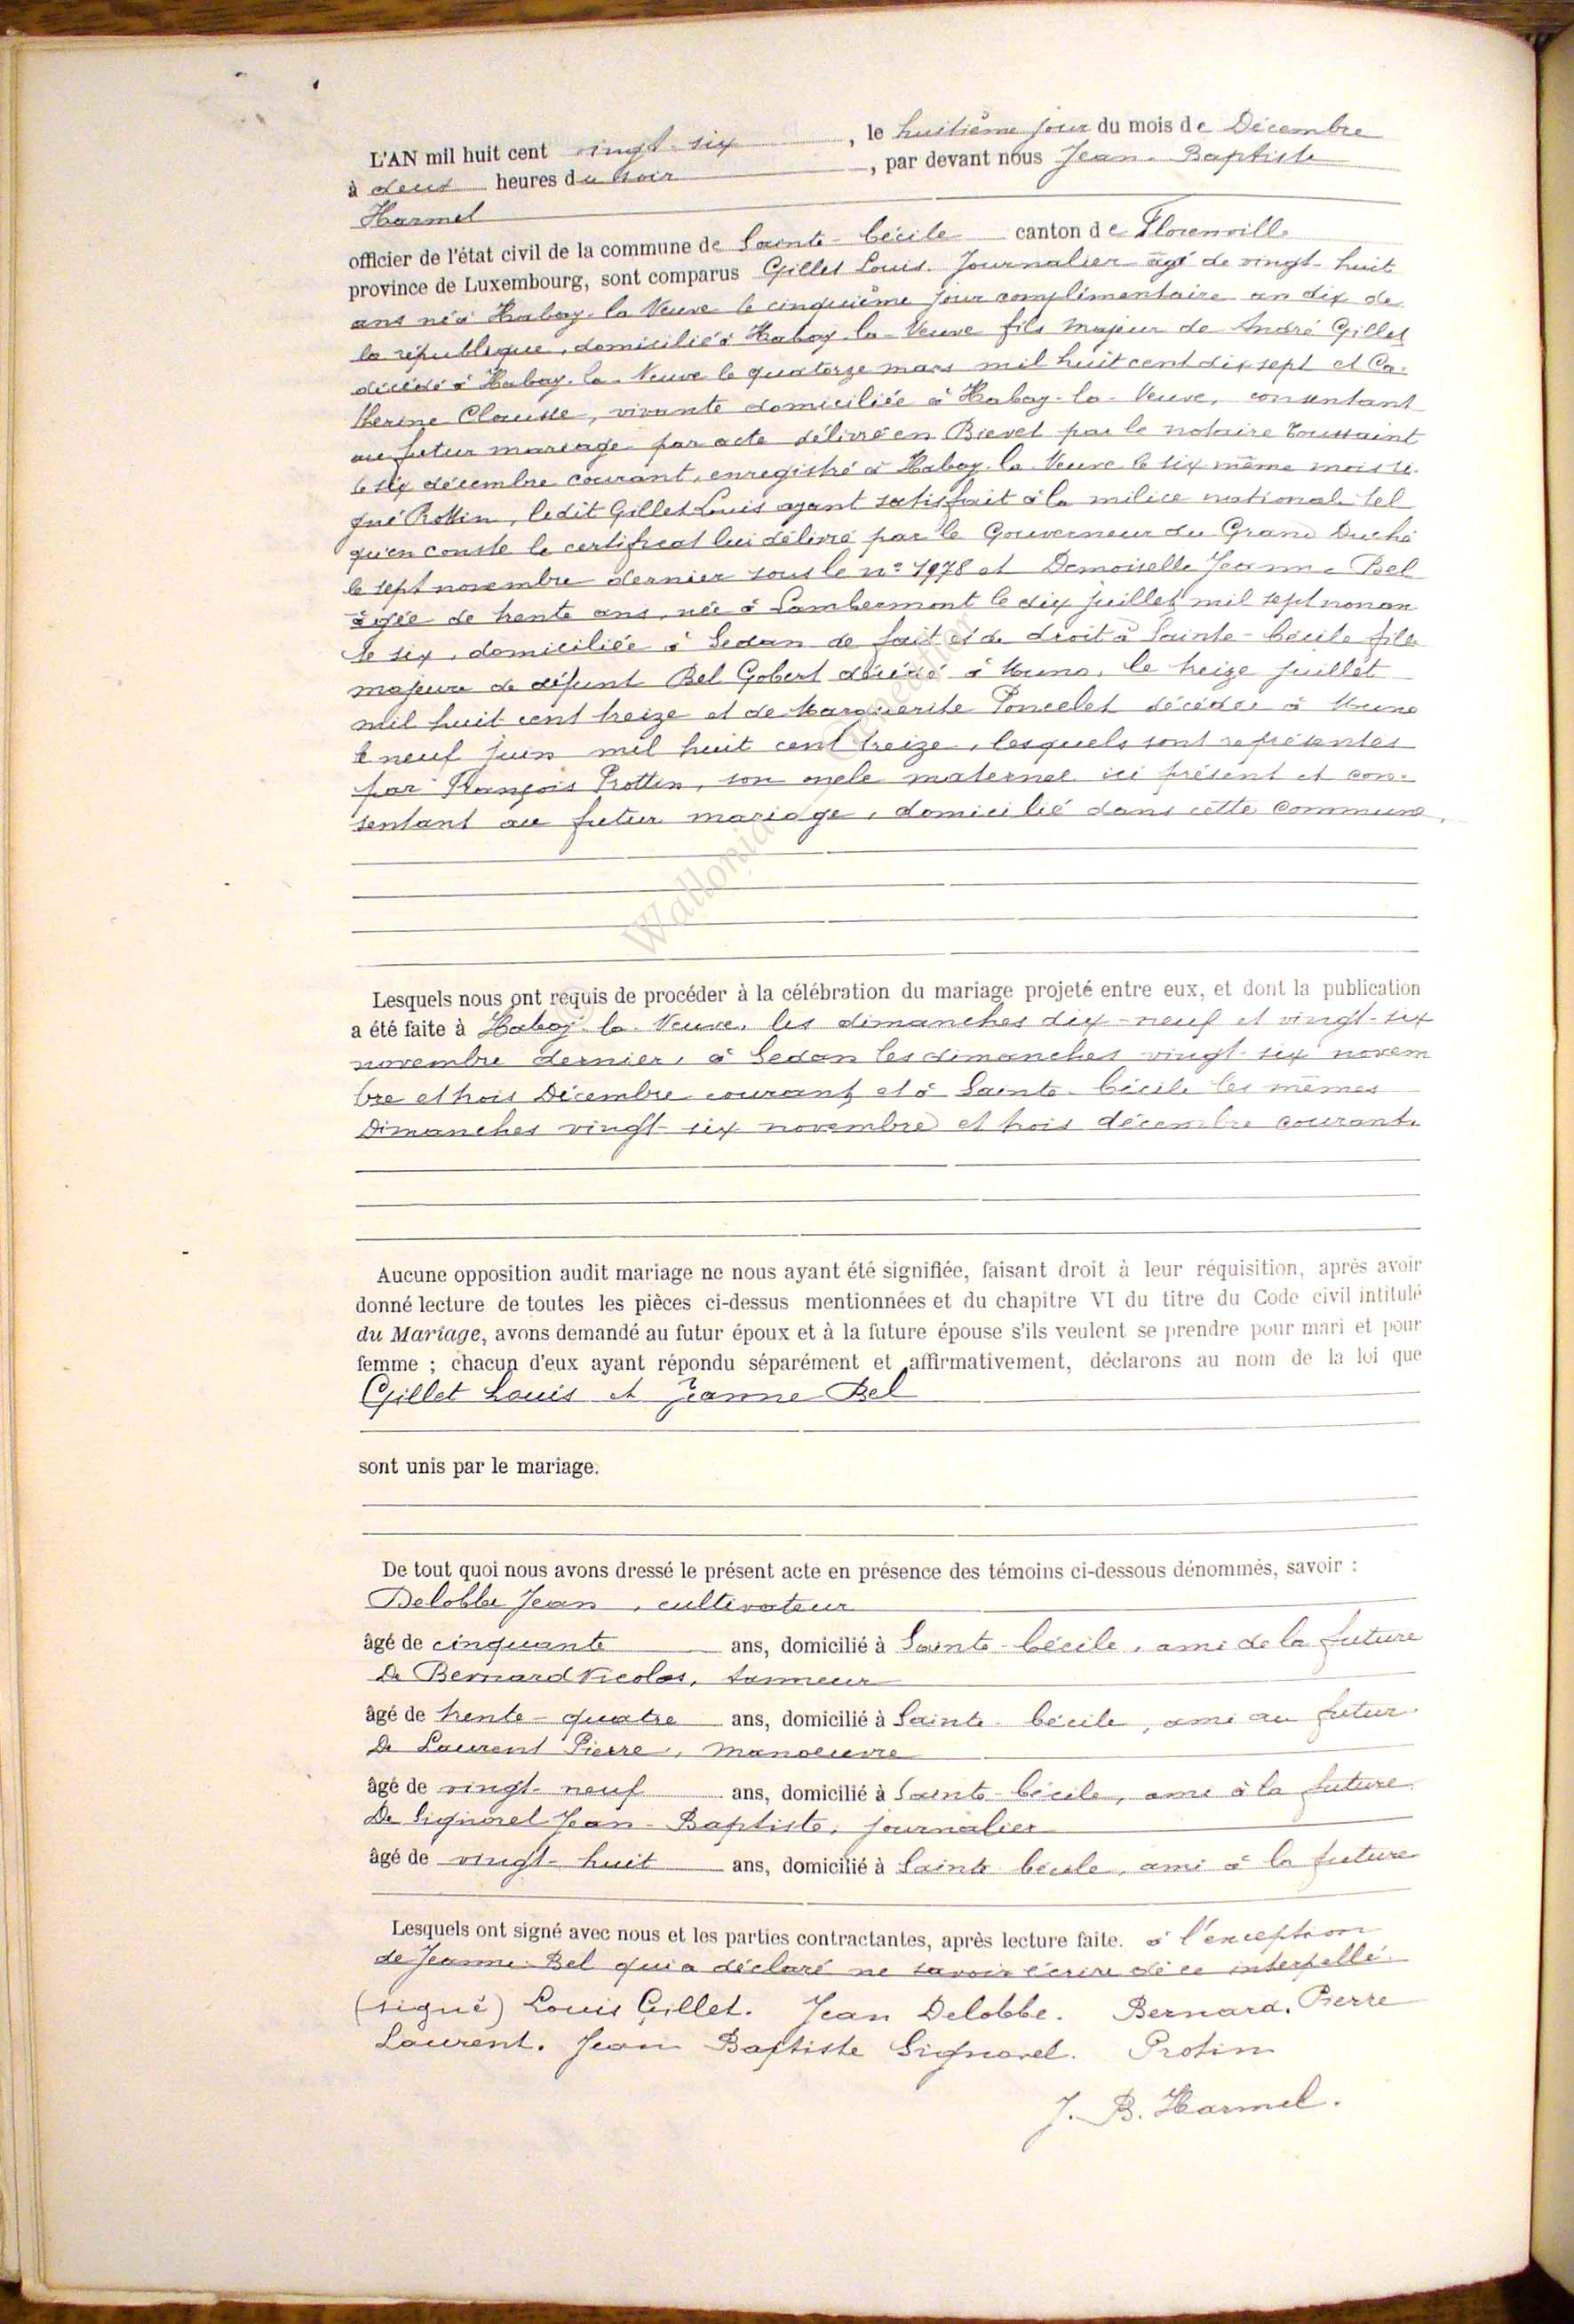 L'AN mil huit cent vingt-six, le huitième jour du mois de Décembre
à deux heures du soir, par devant nous Jean-Baptiste
Harmel
officier de l'état civil de la commune de Sainte-Cécile canton de Florenville
province de Luxembourg, sont comparus Gillet Louis. Journalier âgé de vingt-huit
ans né à Habay-la-Neuve le cinquième jour complémentaire an dix de
la république, domicilié à Habay-la-Neuve fils majeur de André Gillet
décédé à Habay-la-Neuve le quatorze mars mil huit cent dix sept et Ca-
therine Clausse, vivante domiciliée à Habay-la-Neuve, consentant
au futur mariage par acte délivré en Brevet par le notaire Toussaint
le six décembre courant, enregistré à Habay-la-Neuve le six même mois si-
gné Rottin, ledit Gillet Louis ayant satisfait à la milice nationale tel
qu'en conste le certificat lui délivré par le Gouverneur du Grand Duché
le sept novembre dernier sous le n° 1978 et Demoiselle Jeanne Bel
âgée de trente ans, née à Lambermont le dix juillet mil sept nonan
te six, domiciliée à Sedan de fait et de droit à Sainte-Cécile fille
majeure de défunt Bel Gobert décédé à Muno, le treize juillet
mil huit cent treize et de Marguerite Poncelet décédée à Muno
le neuf juin mil huit cent treize, lesquels sont représentés
par François Prottin, son oncle maternel ici présent et con-
sentant au futur mariage, domicilié dans cette commune,
© Wallonia Généalogie
Lesquels nous ont requis de procéder à la célébration du mariage projeté entre eux, et dont la publication
a été faite à Habay-la-Neuve, les dimanches dix-neuf et vingt-six
novembre dernier, à Sedan les dimanches vingt-six novem
bre et trois Décembre courant et à Sainte-Cécile les mêmes
Dimanches vingt-six novembre et trois décembre courant.
Aucune opposition audit mariage ne nous ayant été signifiée, faisant droit à leur réquisition, après avoir
donné lecture de toutes les pièces ci-dessus mentionnées et du chapitre VI du titre du Code civil intitulé
du Mariage, avons demandé au futur époux et à la future épouse s'ils veulent se prendre pour mari et pour
femme ; chacun d'eux ayant répondu séparément et affirmativement, déclarons au nom de la loi que
Gillet Louis et Jeanne Bel
sont unis par le mariage.
De tout quoi nous avons dressé le présent acte en présence des témoins ci-dessous dénommés, savoir :
Delobbe Jean, cultivateur
âgé de cinquante ans, domicilié à Sainte-Cécile, ami de la future
De Bernard Nicolas, tanneur
âgé de trente-quatre ans, domicilié à Sainte-Cécile, ami au futur
De Laurent Pierre, manoeuvre
âgé de vingt-neuf ans, domicilié à Sainte-Cécile, ami à la future
De Signorel Jean-Baptiste, journalier
âgé de vingt-huit ans, domicilié à Sainte Cécile, ami à la future
Lesquels ont signé avec nous et les parties contractantes, après lecture faite. à l'exception
de Jeanne Bel qui a déclaré ne savoir écrire de ce interpellé.
(signé) Louis Gillet. Jean Delobbe. Bernard. Pierre
Laurent. Jean Baptiste Signorel. Protin
J. B. Harmel.